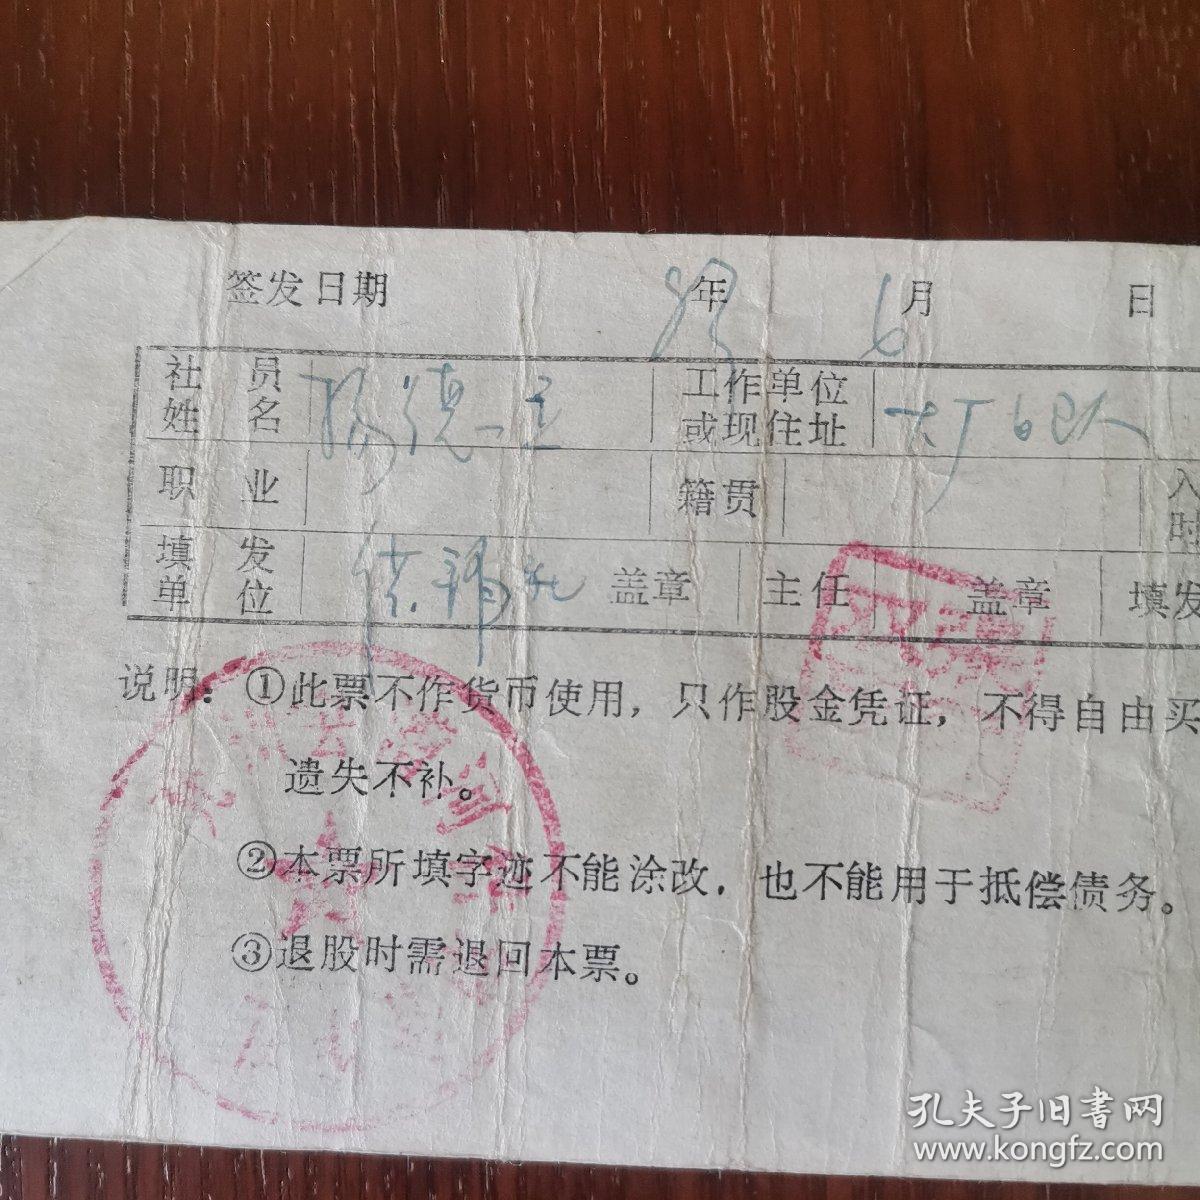 签发日期 年 6月 日
社员姓名 杨德一 工作单位或现住址 大厂6队
职业 籍贯 入
时
填发单位 盖章 主任 盖章 填发
说明：①此票不作货币使用，只作股金凭证，不得自由买
遗失不补。
②本票所填字迹不能涂改，也不能用于抵偿债务。
③退股时需退回本票。
孔夫子旧书网
www.kongfz.com